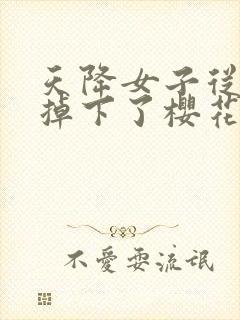 天降女子從
掉下了櫻花
不愛耍流氓